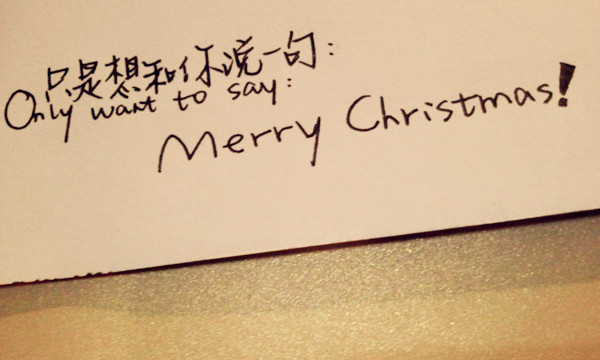 只是想和你说一句:
Only want to say:
Merry Christmas!